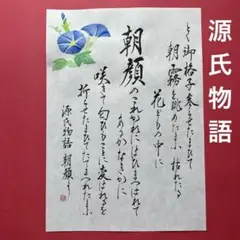 源氏物語
とく御格子参らせたまひて
朝霧を眺めたまふ 枯れたる
花どもの中に
朝顔の これかれにはひまつはれて
あるかなきかに
咲きて 匂ひもことに変はれるを
折らせたまひて たてまつれたまふ
源氏物語 朝顔より